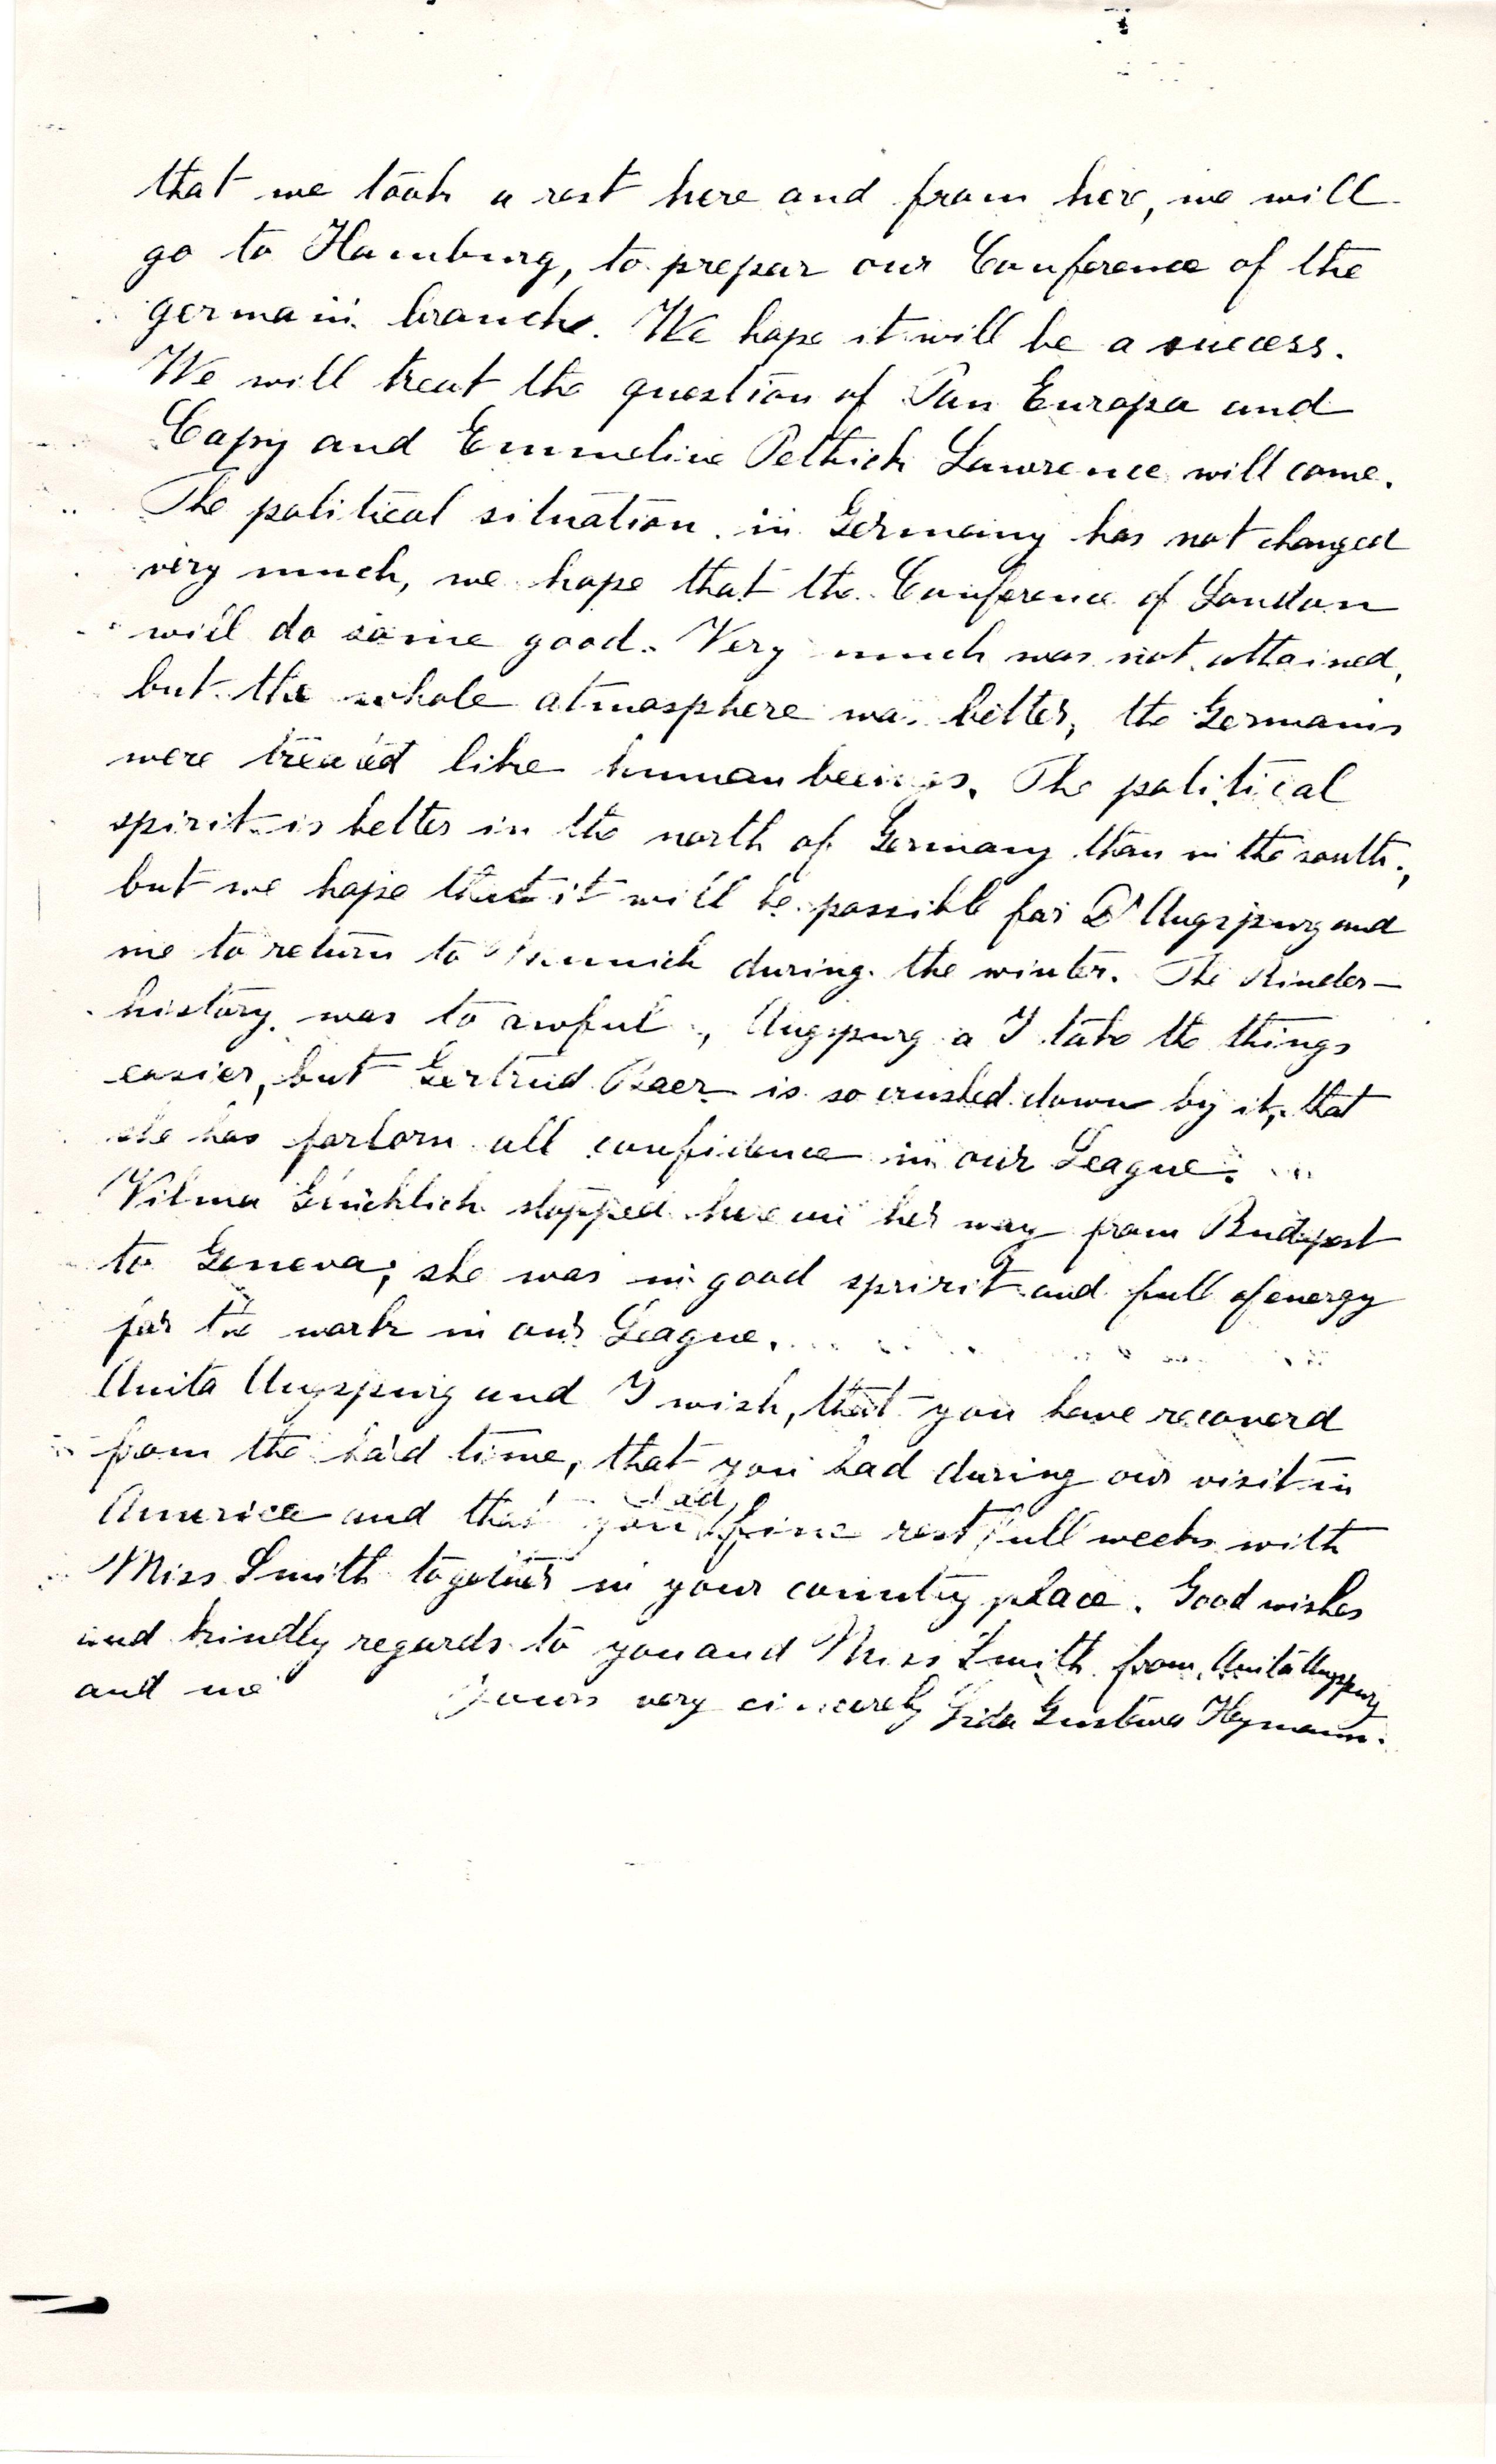 that we took a rest here and from here, we will
go to Hamburg, to prepar our Conference of the
german branch. We hope it will be a success.
We will treat the question of Pan Europa and
Capy and Emmeline Pethick Lawrence will come.
The political situation in Germany has not changed
very much, we hope that the Conference of London
will do some good. Very much was not attained,
but the whole atmosphere was better, the Germans
were treated like human beeings. The political
spirit is better in the north of Germany than in the south,
but we hope that it will be possible for Dr Augspurg and
me to return to Munich during the winter. The Kinder-
history was to awful, Augspurg a I take the things
easier, but Gertrud Baer is so crushed down by it, that
she has forlorn all confidence in our League.
Vilma Glücklich stopped here on her way from Budapest
to Geneva, she was in good spririt and full of energy
for the work in our League.
Anita Augspurg and I wish, that you have recoverd
from the hard time, that you had during our visit in
America and that you had fine restfull weeks with
Miss Smith together in your country place. Good wishes
and kindly regards to you and Miss Smith from Anita Augspurg
and me Yours very sincerely Lida Gustava Heymann.